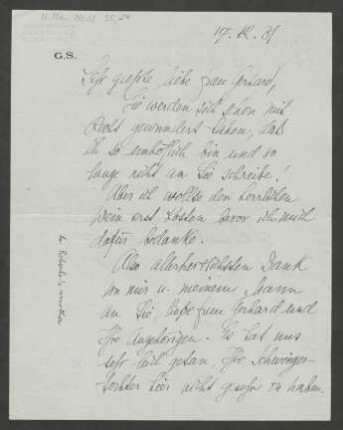 17. XI. 31
G.S.
Sehr geehrte liebe Frau Gerhard,
Sie werden sich schon mit
Recht gewundert haben, daß
ich so unhöflich bin und so
lange nicht an Sie schreibe!
Aber ich wollte den herrlichen
Wein erst kosten bevor ich mich
dafür bedanke.
Also allerherzlichsten Dank
von mir u. meinem Mann
an Sie, liebe Frau Gerhard und
Ihre Angehörigen. Es hat uns
sehr leid getan, Ihre Schwieger-
tochter hier nicht gesehn zu haben.
to Roberto's mother